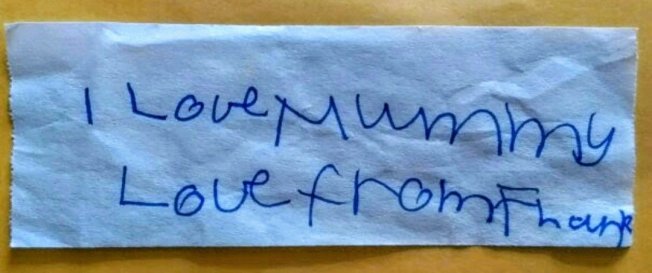 I Love Mummy
Love from Frank